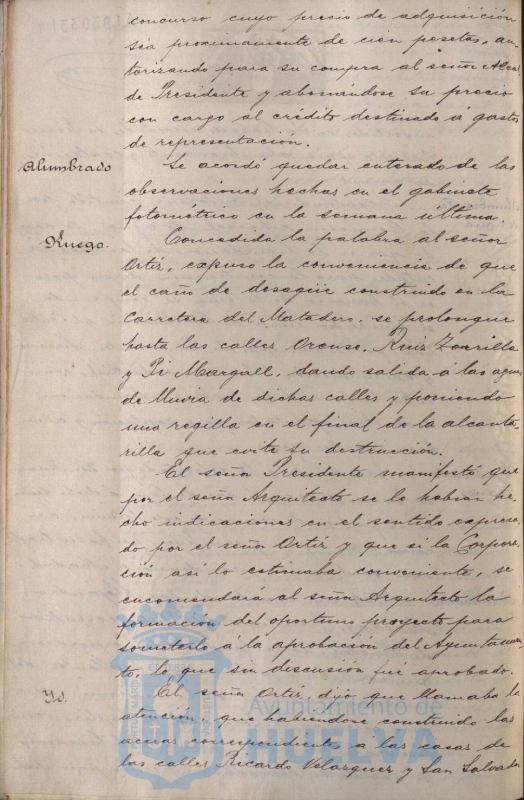 concurso cuyo precio de adquisición
sea proximamente de cien pesetas, au-
torizando para su compra al señor Alcal
de Presidente y abonandose su precio
con cargo al crédito destinado á gastos
de representación.
Alumbrado
Se acordó quedar enterado de las
observaciones hechas en el gabinete
fotométrico en la semana última.
Ruego.
Concedida la palabra al señor
Ortíz, expuso la conveniencia de que
el caño de desagüe construido en la
Carretera del Matadero, se prolongue
hasta las calles Orense, Ruiz Zorrilla
y Pi Margall, dando salida á las aguas
de lluvia de dichas calles y poniendo
una regilla en el final de la alcanta-
rilla que evite su destrucción.
El señor Presidente manifestó que
por el señor Arquitecto se le habian he
cho indicaciones en el sentido expresa
do por el señor Ortíz y que si la Corpora
ción así lo estimaba conveniente, se
encomendará al señor Arquitecto la
formación del oportuno proyecto para
someterlo á la aprobación del Ayuntamien
to, lo que sin discusión fué aprobado.
Yd.
El señor Ortíz, dijo que llamaba la
atención, que habiendose construido las
aceras correspondientes a las casas de
las calles Ricardo Velazquez y San Salvador
Ayuntamiento de
HUELVA